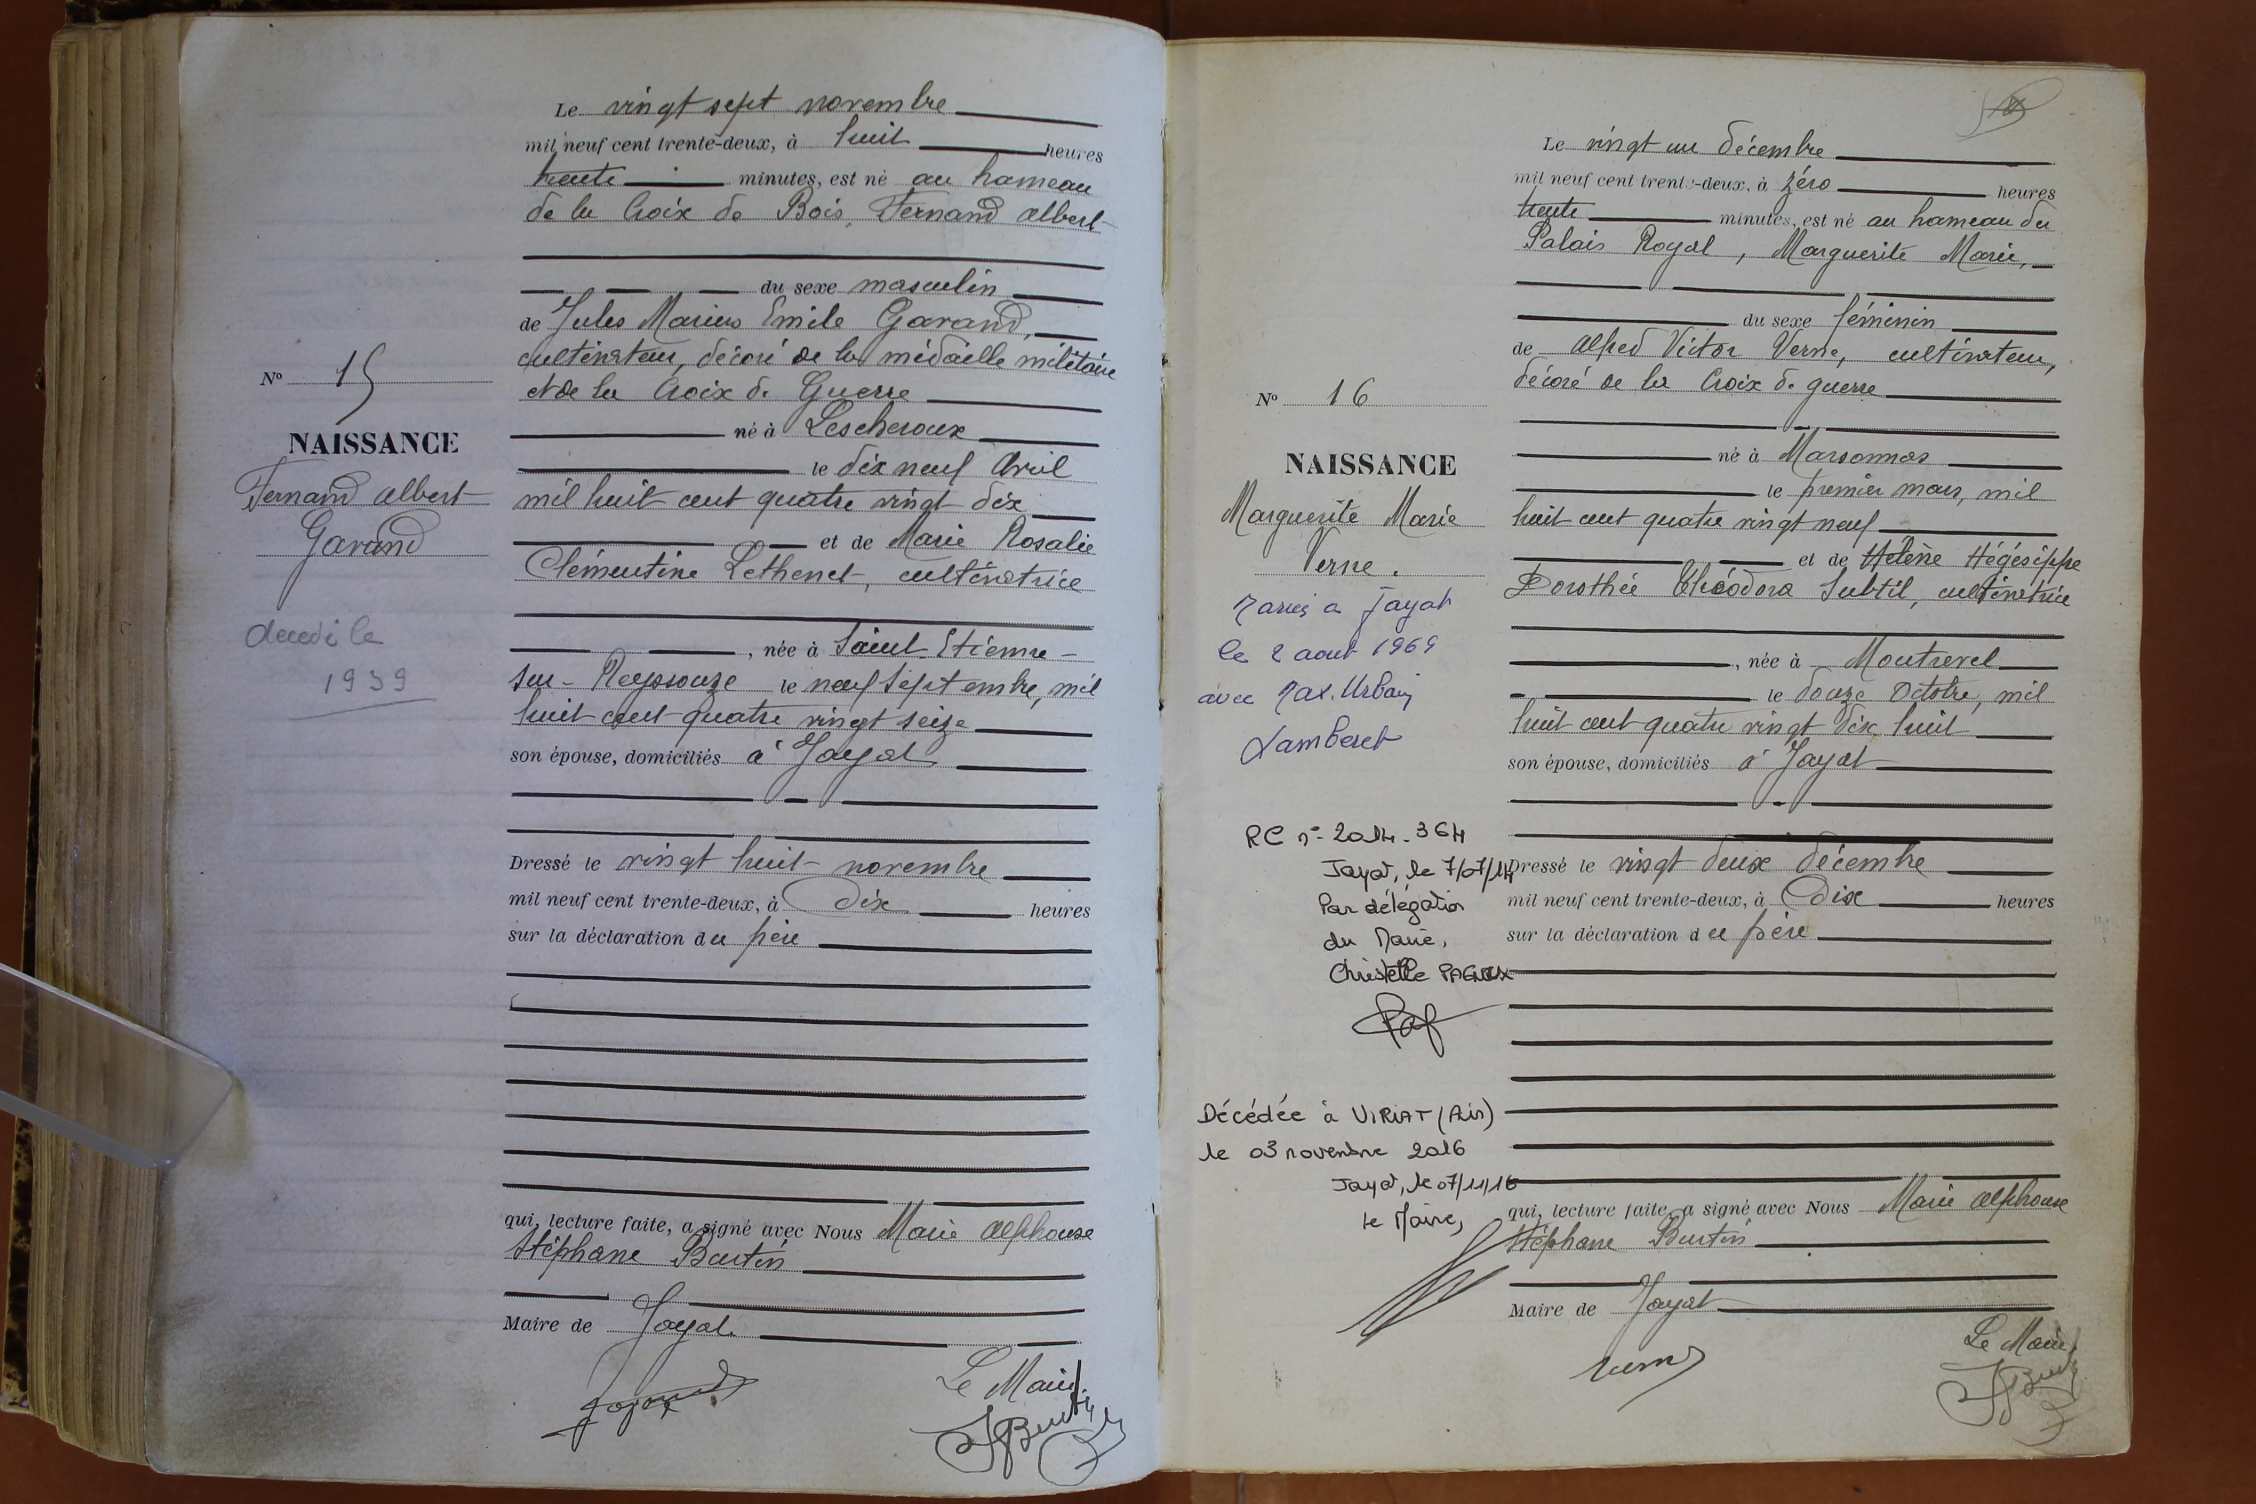 Le vingt sept novembre
mil neuf cent trente-deux, à huit heures
trente minutes, est né au hameau
de la Croix de Bois, Fernand Albert
du sexe masculin
de Jules Marius Emile Garand,
cultivateur, décoré de la médaille militaire
et de la Croix de Guerre
né à Lescheroux
le dix neuf Avril
mil huit cent quatre vingt dix
et de Marie Rosalie
Clémentine Lethenet, cultivatrice
, née à Saint Etienne
sur Reyssouze le neuf septembre, mil
huit cent quatre vingt seize
son épouse, domiciliés à Jayat
Dressé le vingt huit novembre
mil neuf cent trente-deux, à Dix heures
sur la déclaration du père
qui, lecture faite, a signé avec Nous Marie Alphonse
Stéphane Burtin
Maire de Jayat.
Le Maire
Nº 15
NAISSANCE
Fernand Albert
Garand
décédé le
1939
Le vingt un décembre
mil neuf cent trente-deux, à zéro heures
trente minutes, est né au hameau du
Palais Royal, Marguerite Marie,
du sexe féminin
de Alfred Victor Verne, cultivateur,
décoré de la Croix de guerre
né à Marsonnas
le premier mars, mil
huit cent quatre vingt neuf
et de Hélène Hégésippe
Dorothée Théodora Subtil, cultivatrice
, née à Montrevel
le douze Octobre, mil
huit cent quatre vingt dix huit
son épouse, domiciliés à Jayat
Dressé le vingt deux décembre
mil neuf cent trente-deux, à Dix heures
sur la déclaration du père
qui, lecture faite, a signé avec Nous Marie Alphonse
Stéphane Burtin
Maire de Jayat
Le Maire
Nº 16
NAISSANCE
Marguerite Marie
Verne.
Mariée à Jayat
le 2 aout 1969
avec Max. Urbain
Lamberet
RC n°- 2014-364
Jayat, le 7/07/14
Par délégation
du Maire,
Christelle PAGNEUX
Décédée à VIRIAT (Ain)
le 03 novembre 2016
Jayat, le 07/11/16
Le Maire,